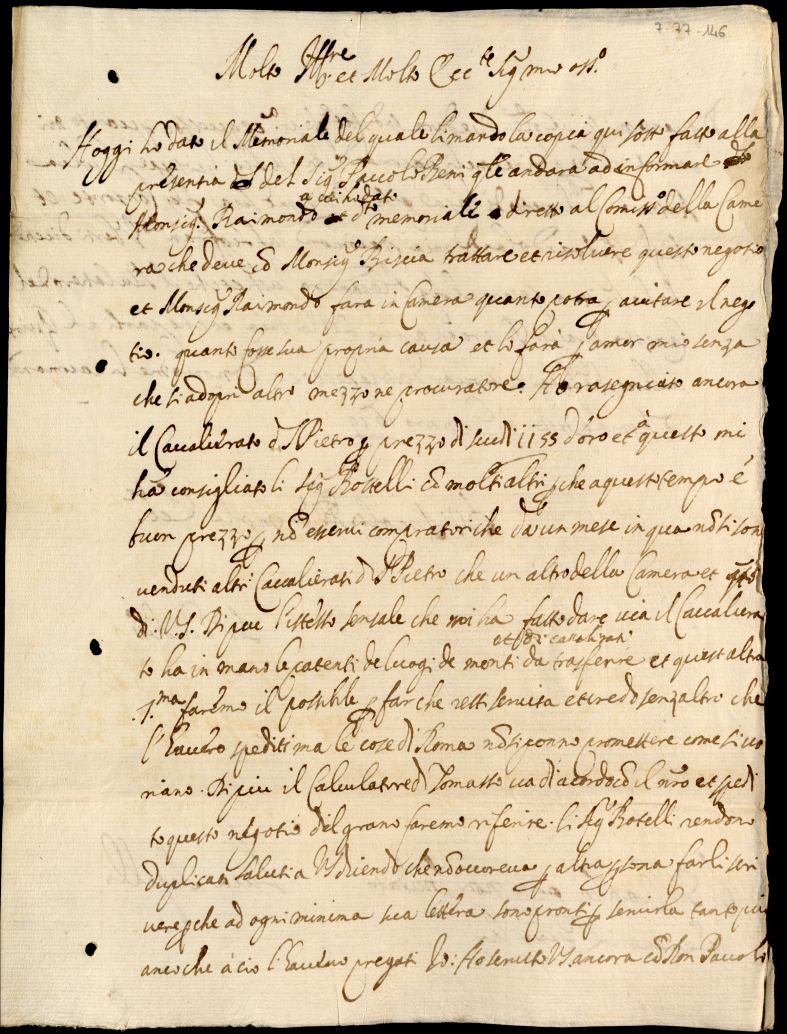 7-77-146
Molto Ill.re et Molto Ecc.te Sig.r mio oss.o
Hoggi ho dato il Memoriale del quale li mando la copia qui sotto fatto alla
presentia del Sig.r Paccolo Beni q.le andarà ad informare
Monsig.r Raimondo memoriale diretto al Comiss.o della Came
ra che deve cō Monsig.r Biscia trattare et risolvere questo negotio
et Monsig.r Raimondo farà in Camera quanto potrà ꝑ aiutare il nego
tio. quanto fosse sua propria causa et lo farà ꝑ amor mio senza
che si adopri altro mezzo ne procuratore. Ho rasegniato ancora
il Cavalierato di S Pietro ꝑ prezzo di scudi 1155 d'oro et à questo mi
hà consigliato li Sig.ri Bottelli cō molti altri ꝑche a questo tempo è
buon prezzo ꝑ nō esservi compratori che da un mese in qua nō si son
venduti altri Cavalierati di S Pietro che un altro della Camera et q.to
di V.S. Di piu l'istesso sensale che mi ha fatto dare via il Cavaliera
to ha in mano le patenti de luogi de monti da trasferire et quest altra
7.ma faremo il possibile ꝑ far che resti servita et credo senz altro che
l'haverò spedite ma le cose di Roma nō si ponno promettere come si vo
riano. Di piu il Calculatore di Tomasso va di acordo cō il nr̄o et spedi
to questo negotio del grano faremo riferire. li Sig.ri Botelli rendono
duplicati saluti a VS dicendo che nō occoreva ꝑ altra ꝑsona farli scri
vere ꝑche ad ogni minima sua lettera sono pronti ꝑ servirla tanto piu
anco che à ciò l'haveuo pregati Io. Ho servito VS. ancora cō Don Pauolo